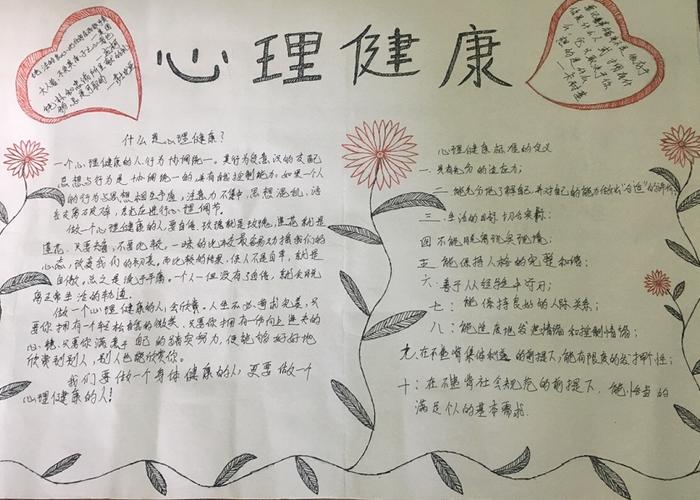 心理健康
什么是心理健康？
一个心理健康的人，行为协调统一。其行为受意识的支配
思想与行为是协调统一的，并有自我控制能力。如果一个人
的行为与思想相互矛盾，注意力不集中，思想混乱，语
言支离破碎，应该进行心理调节。
做一个心理健康的人，要自信，玫瑰就是玫瑰，莲花就是
莲花，只要去看，不要比较。一味的比较最容易动摇我们的
心态，改变我们的初衷，而比较的结果，使人不是自卑，就是
自傲，总之是流于平庸。一个人但没有了自信，就会脱
离正常生活的轨道。
做一个心理健康的人，会欣赏。人生不必要求完美，只
要你拥有一个轻松自然的微笑，只要你拥有一份向上进取的
心态，只要你满意于自己的踏实努力，便能够好好地
欣赏到别人，别人也能欣赏你。
我们要做一个身体健康的人，更要做一个
心理健康的人！
心理健康标准的定义
一、具有充分的适应力；
二、能充分地了解自己，并对自己的能力作出“合适”的评价；
三、生活的目标切合实际；
四、不能脱离现实环境；
五、能保持人格的完整和谐；
六、善于从经验中学习；
七、能保持良好的人际关系；
八、能适度地发泄情绪和控制情绪；
九、在不违背集体利益的前提下，能有限度的发挥个性；
十、在不违背社会规范的前提下，能恰当的
满足个人的基本需求．